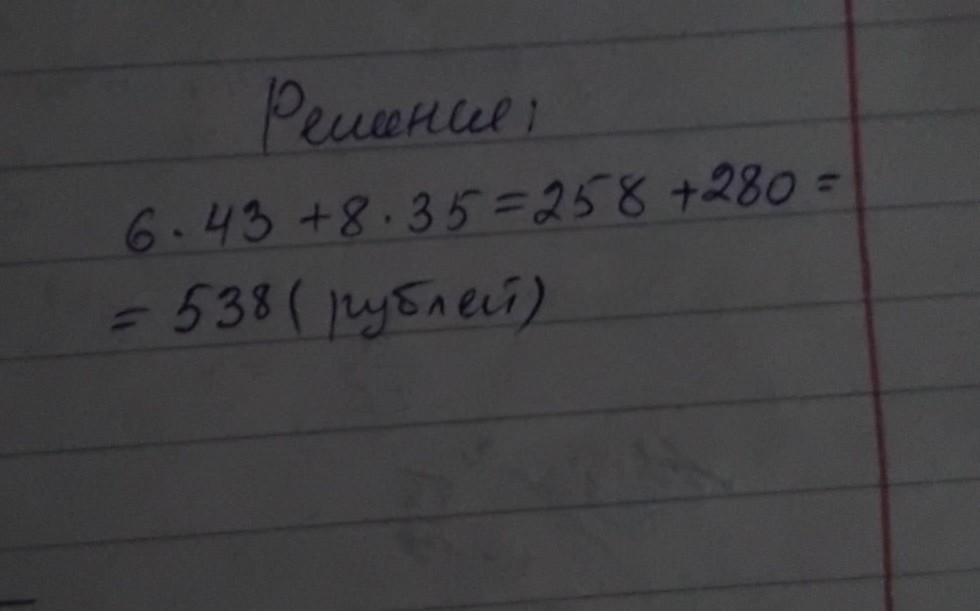 Решение:
6 · 43 + 8 · 35 = 258 + 280 =
= 538 (рублей)